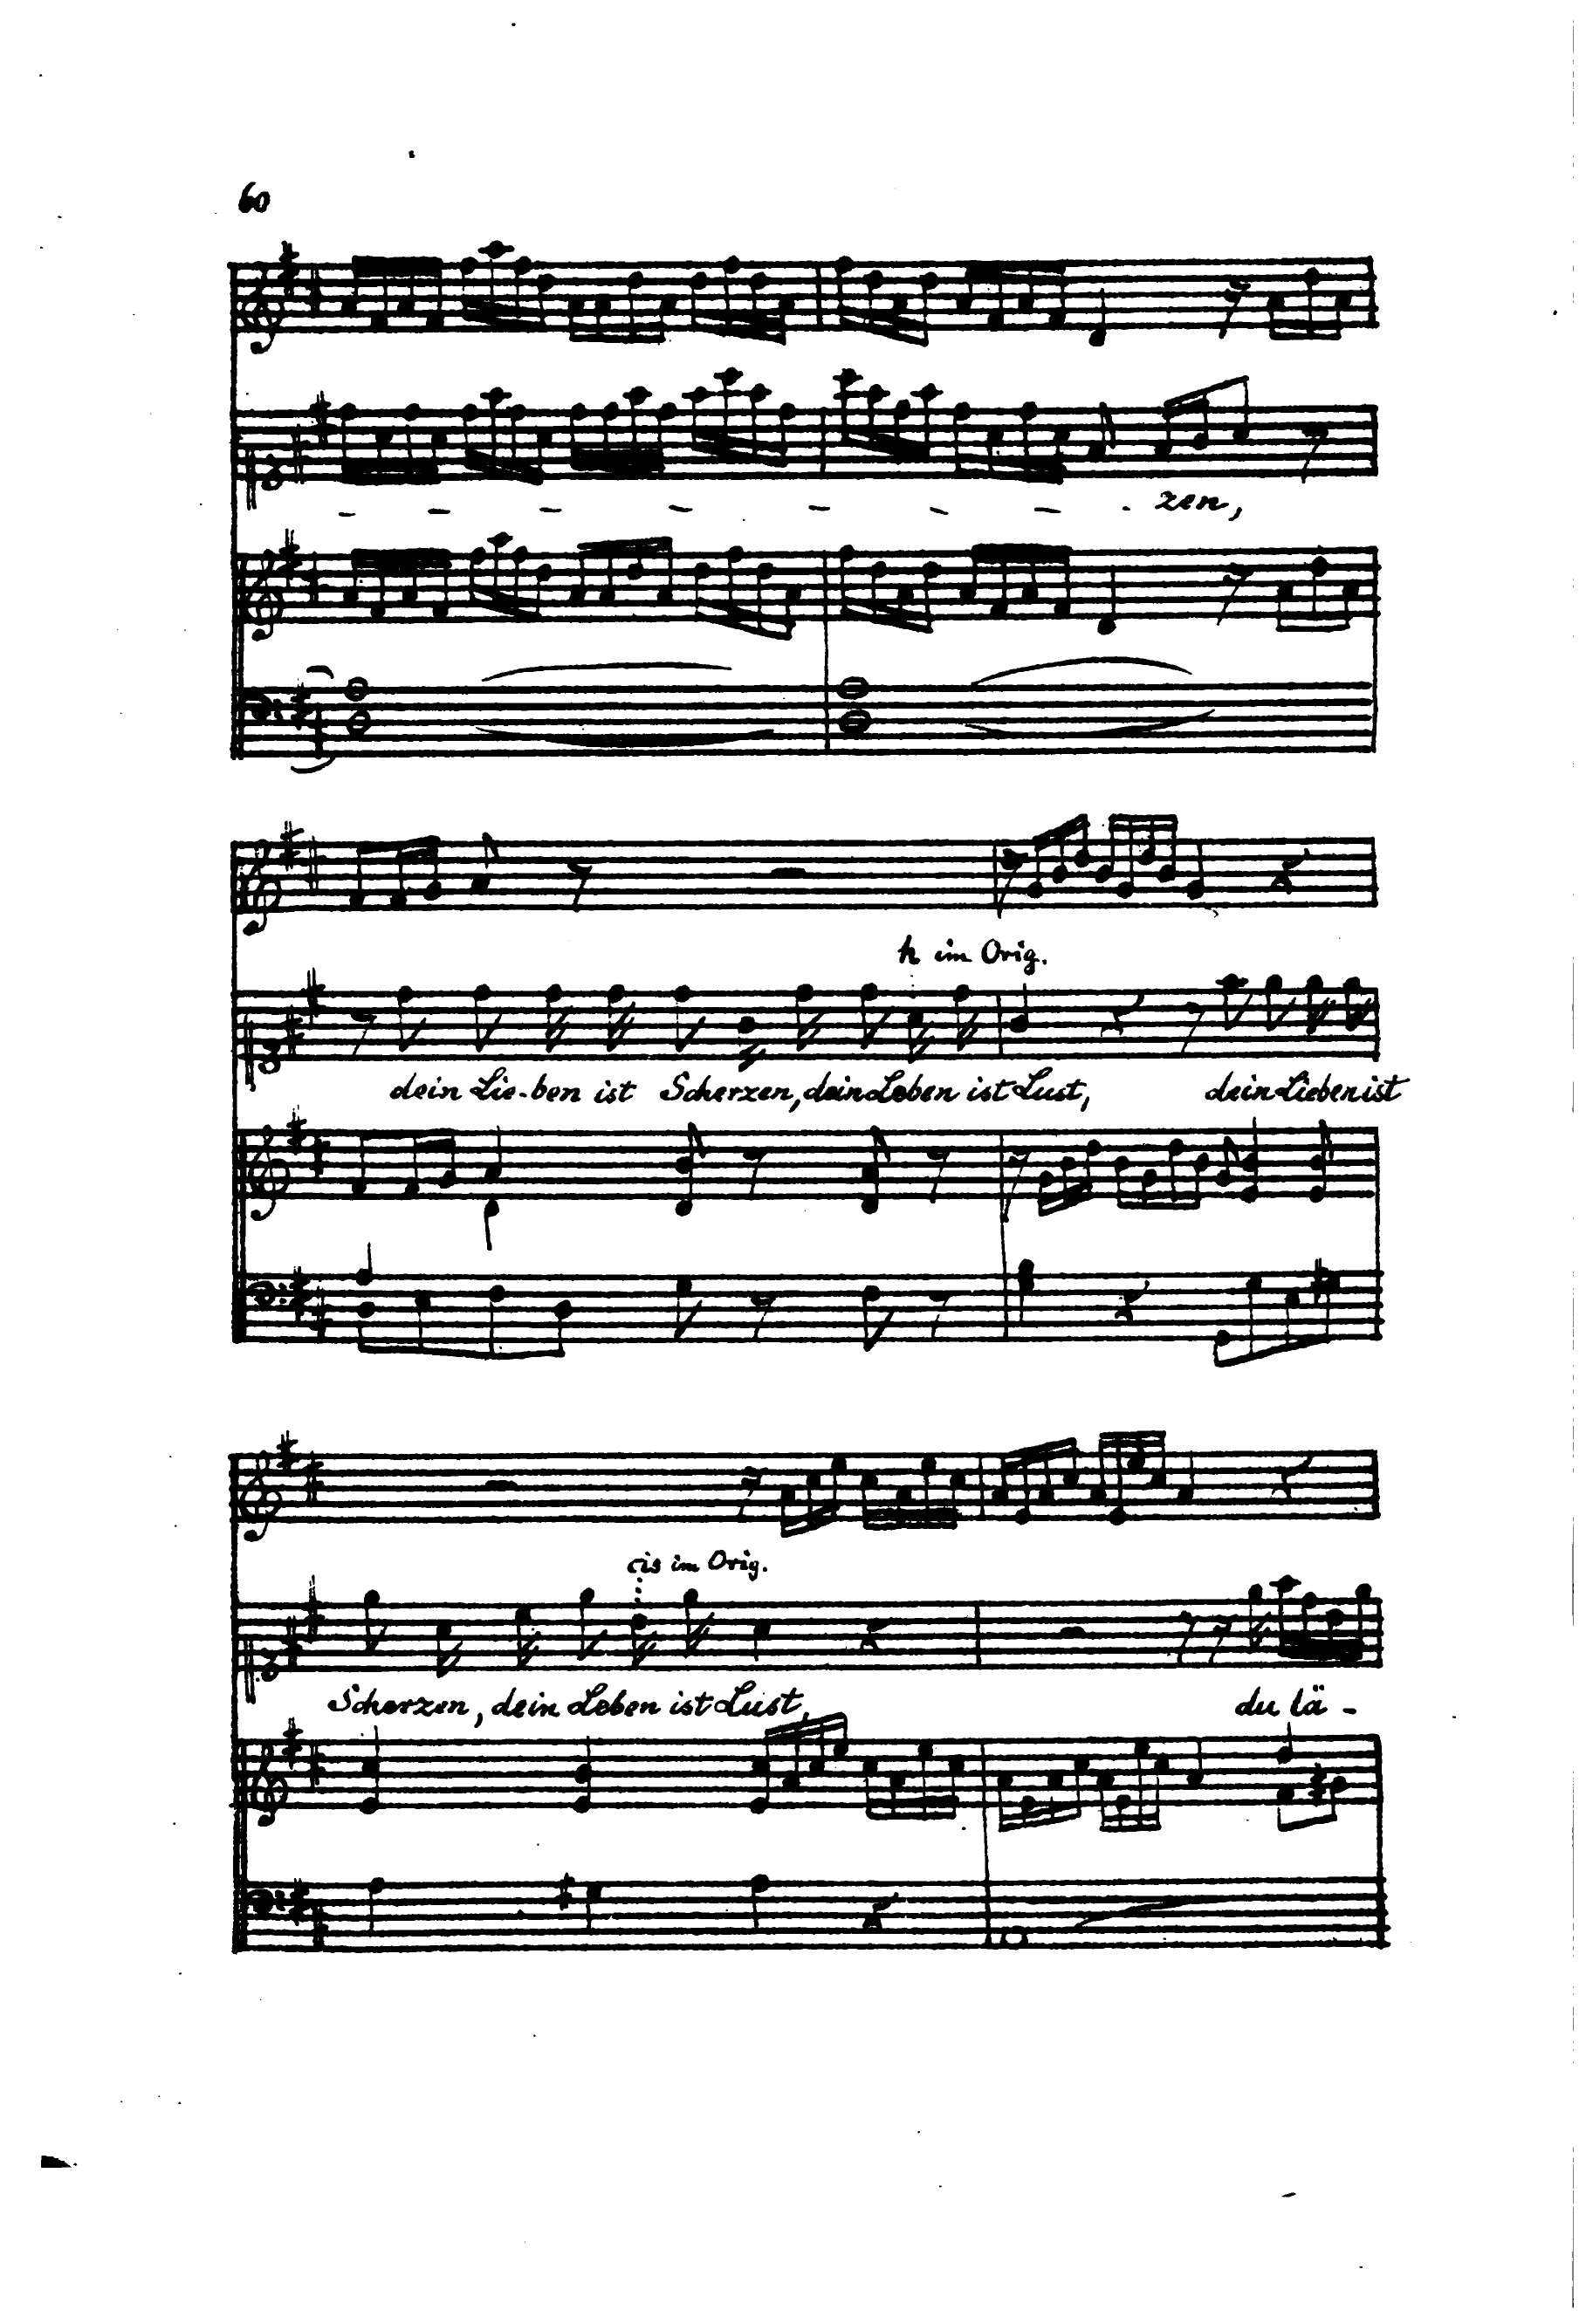 60
- - - - - - - - zen,
h im Orig.
dein Lie-ben ist Scherzen, dein Leben ist Lust, dein Lieben ist
cis im Orig.
Scherzen, dein Leben ist Lust, du lä -